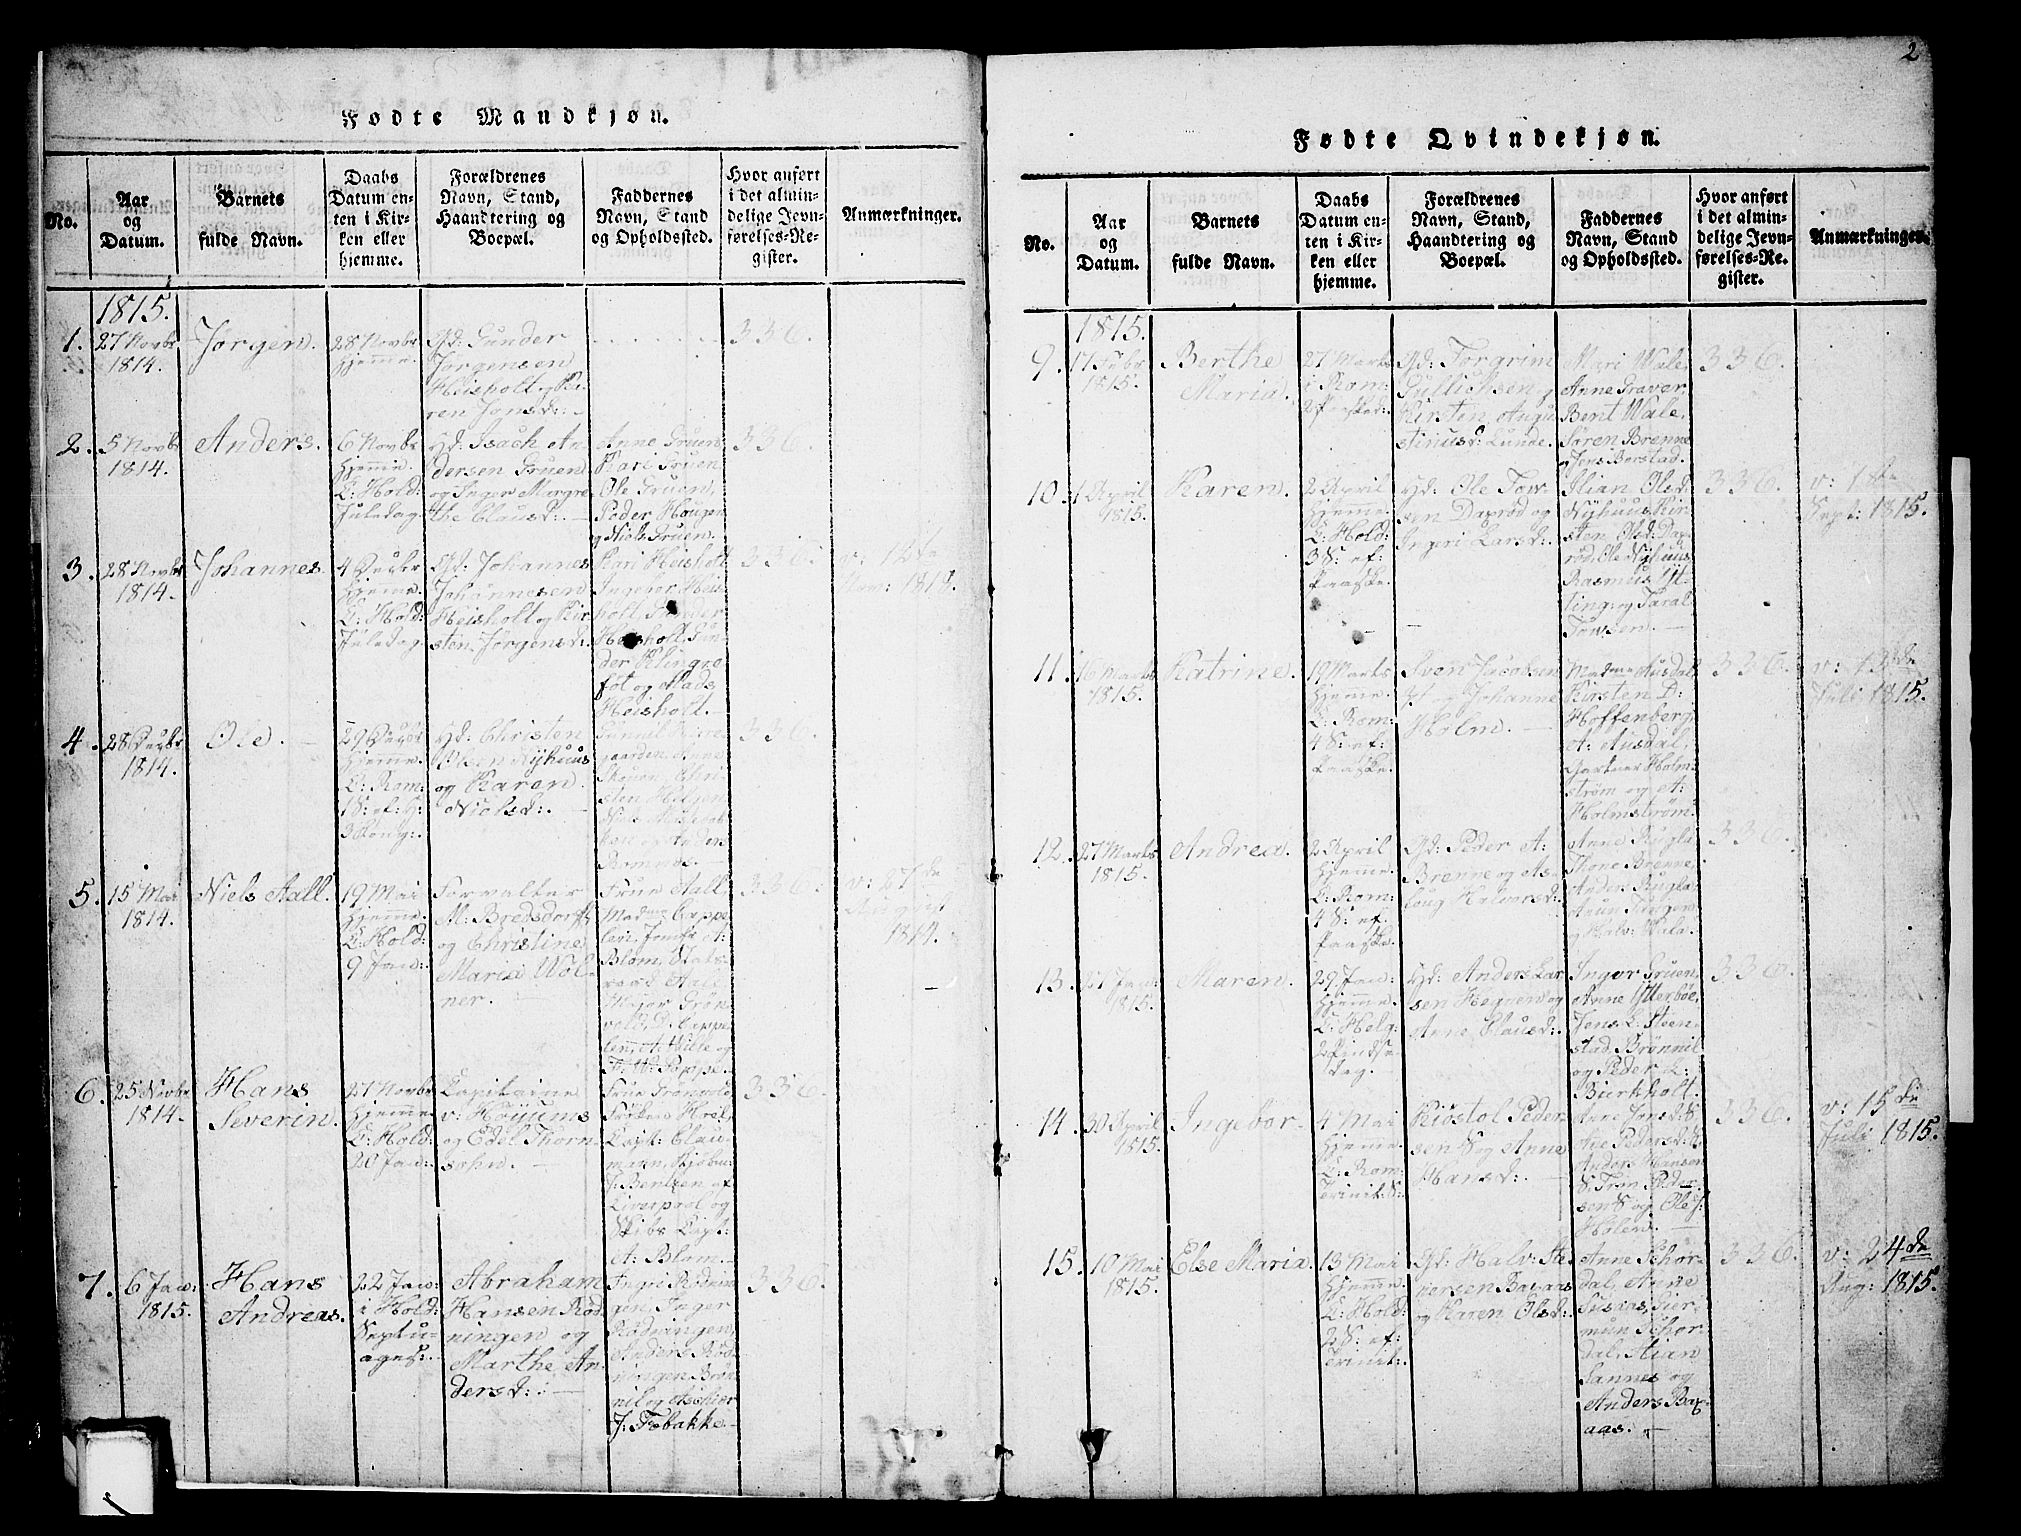 2
Fødte Mandkjøn.
No.
Aar
og
Datum.
Barnets
fulde Navn.
Daabs
Datum en-
ten i Kir-
ken eller
hjemme.
Forældrenes
Navn, Stand,
Haandtering og
Boepæl.
Faddernes
Navn, Stand
og Opholdssted.
Hvor anført
i det almin-
delige Jevn-
førelses-Re-
gister.
Anmærkninger.
1815.
1.
27 Novbr
1814.
Jørgen.
28 Novbr
hjemme.
Gd: Gunder
Jørgensen
Heisholt og Ka-
ren Jonsd:
336.
2.
5 Novbr
1814.
Anders.
6 Novbr
hjemme.
C: Hold:
Juledag.
Hd: Isach An-
dersen Gruen
og Inger Margre-
the Clausd:
Anne Gruen,
Kari Gruen
Ole Gruen,
Peder Hougen
og Niels Gruen.
336.
3.
28 Novbr
1814.
Johannes
4 Decbr
hjemme.
C: Hold:
Juledag
Gd: Johannes
Johannesen
Heisholt og Kir-
sten Jørgensd:
Kari Heisholt
Ingebor Hei-
holt Gunder
Heisholt, Gun-
der Klingre-
fot og Mads
Heisholt.
336
v: 12te
Nov: 1814.
4.
28 Decbr
1814.
Ole.
29 Decbr
hjemme.
C: Rom:
1 S: ef: H:
3 Kong:
Hd: Christen
Olsen Nyhuus
og Karen
Nielsd:
336.
5.
15 Mai
1814.
Niels Aall.
19 Mai
hjemme.
C: Hold:
9 Jan:
Forvalter
M: Bredsdorff
og Christine
Maria Wöl-
ner.
Frue Aall
Madme Cappe-
len, Jomfr A:
Blom, Stats-
raad Aall
Major Grön-
vold, D: Cappe-
len, A:
336.
v: 27de
August
1814.
6.
25 Novbr
1814.
Hans
Severin.
27 Novbr
hjemme
C: Hold:
20 Jan:
Capitaine
v: Höyums
og Edel Thorn-
sohn.
Frue Grönvold
Capt: Clau-
J: Bentzen af
Liverpool og
Skibs Capt:
A: Blom.
336.
7.
6 Jan:
1815.
Hans
Andreas.
22 Jan:
i Hold:
Septu-
ages:
Abraham
Hansen Rød-
ningen og
Marthe An-
dersd:
Ingri Rødnin-
gen, Inger
Rødningen,
Anders Rød-
ningen, Brön-
nil og Aschier
J: Febakke.
336.
Fødte Qvindekjøn.
No.
Aar
og
Datum.
Barnets
fulde Navn.
Daabs
Datum en-
ten i Kir-
ken eller
hjemme.
Forældrenes
Navn, Stand,
Haandtering og
Boepæl.
Faddernes
Navn, Stand
og Opholdssted.
Hvor anført
i det almin-
delige Jevn-
førelses-Re-
gister.
Anmærkninger.
1815.
9.
17 Febr
1815.
Berthe
Maria.
27 Marts
i Rom:
2 Paasked:
Gd: Torgrim
Gullichsen og
Kirsten Augu-
stinusd: Lunde.
Mari Wale,
Anne Graver
Bent Wale,
Søren Brenne
og Jens Borstad.
336.
10.
1 April
1815.
Karen.
2 April
hjemme.
C: Hold:
3 S: ef:
Paaske.
Hd: Ole Tov-
sen Daxrød og
Ingeri Larsd:
Ilian Olsd:
Nyhuus Kir-
sten Olsd: Dax-
rød, Ole Nyhuus
Rasmus Yt-
ting og Taral
Tovsen.
336.
v: 18de
Sept: 1815.
11.
16 Marts
1815.
Katrine.
19 Marts
hjemme.
C: Rom:
4 S: ef:
Paaske.
Sven Jacobsen
og Johanne
Holm.
Madme Ausdal,
Kirsten D:
Hoffenberg,
A: Ausdal,
Gartner Holm-
strøm og A:
Holmstrøm.
336.
v: 13de
Juli 1815.
12.
27 Marts
1815.
Andrea.
2 April
hjemme.
C: Rom:
4 S: ef:
Paaske.
Gd: Peder A:
Brenne og As-
loug Halvorsd:
Anne Rugla
Thone Brenne,
Anders Rugla,
og Halv: Wala.
336.
13.
21 Jan:
1815.
Maren.
29 Jan:
hjemme.
C: Helg:
2 Pindse-
dag.
Hd: Anders Lar-
sen Hegnen og
Anne Clausd:
Inger Gruen,
Anne Ytterbøe,
Jens L: Steen-
stad, Brønnil
og Peder L:
Birkholt.
336.
14.
30 April
1815.
Ingebor
4 Mai
hjemme.
C: Rom:
Trinit: S:
Kiøstol Peder-
sen S og Anne
Hansd:
Anne Jonsd: S
Anders Hansen
sen S og Ole J:
Holen.
336.
v: 15de
Juli 1815.
15.
10 Mai
1815.
Else Maria.
13 Mai
hjemme.
C: Hold:
2 S: ef:
Trinit:
Gd: Halv: Ste-
nersen Baxaas
og Karen Olsd:
Anne Schor-
dal, Anne
Susaas, Gier-
mun Schor-
dal, Kian
Sannes og
Anders Bax-
aas.
336.
v: 24de
Aug: 1815.